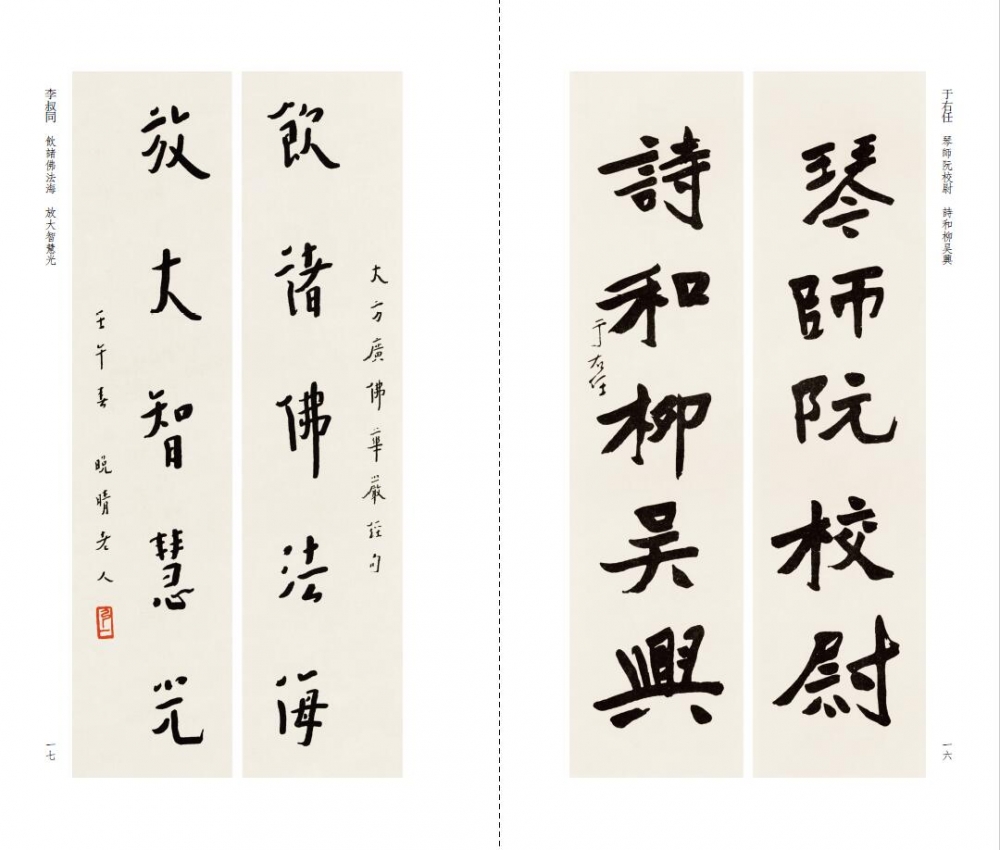 于右任 琴師阮校尉 詩和柳吳興
琴師阮校尉
詩和柳吳興
于右任
一六
大方廣佛華嚴經句
飲諸佛法海
放大智慧光
壬午春 晚晴老人
李叔同 飲諸佛法海 放大智慧光
一七